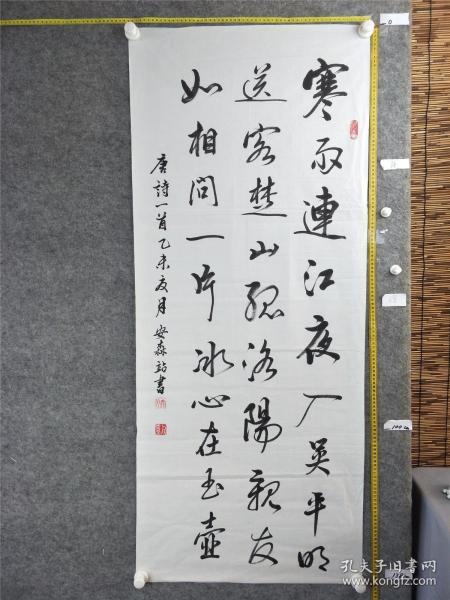 寒雨連江夜入吴平明
送客楚山孤洛陽親友
如相問一片冰心在玉壺
唐詩一首乙未夏月安森站書
孔夫子旧书网
www.kongfz.com